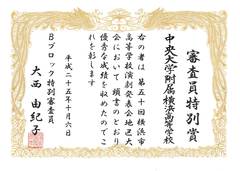 審査員特別賞
中央大学附属横浜高等学校
右の者は第五十回横浜市
高等学校演劇発表会地区大
会において頭書のとおり
優秀な成績を収めたのでこ
れを彰します
平成二十五年十月六日
Bブロック特別審査員
大西由紀子